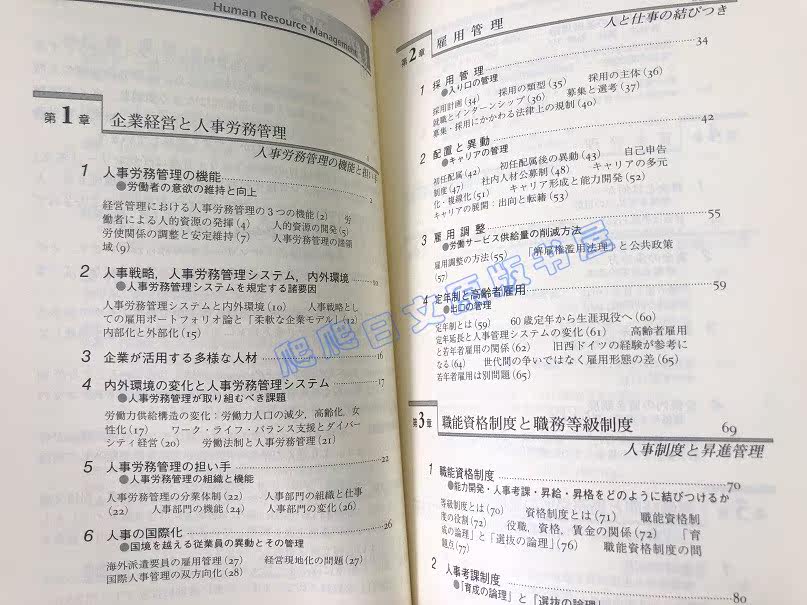 Human Resource Management
第1章 企業経営と人事労務管理
人事労務管理の機能と担
1 人事労務管理の機能 2
●労働者の意欲の維持と向上
経営管理における人事労務管理の3つの機能(2) 労
働者による人的資源の発揮(4) 人的資源の開発(5)
労使関係の調整と安定維持(7) 人事労務管理の諸領
域(9)
2 人事戦略,人事労務管理システム,内外環境 10
●人事労務管理システムを規定する諸要因
人事労務管理システムと内外環境(10) 人事戦略とし
ての雇用ポートフォリオ論と「柔軟な企業モデル」(12)
内部化と外部化(15)
3 企業が活用する多様な人材 16
4 内外環境の変化と人事労務管理システム 17
●人事労務管理が取り組むべき課題
労働力供給構造の変化:労働力人口の減少,高齢化,女
性化(17) ワーク・ライフ・バランス支援とダイバー
シティ経営(20) 労働法制と人事労務管理(21)
5 人事労務管理の担い手 22
●人事労務管理の組織と機能
人事労務管理の分業体制(22) 人事部門の組織と仕事
(22) 人事部門の機能(24) 人事部門の変化(26)
6 人事の国際化 26
●国境を越える従業員の異動とその管理
海外派遣要員の雇用管理(27) 経営現地化の問題(27)
国際人事管理の双方向化(28)
第2章 雇用管理
人と仕事の結びつき
34
1 採用管理
●入り口の管理
採用計画(34) 採用の類型(35) 採用の主体(36)
就職とインターンシップ(36) 募集と選考(37)
募集・採用にかかわる法律上の規制(40)
42
2 配置と異動
●キャリアの管理
初任配属(42) 初任配属後の異動(43) 自己申告
制度(47) 社内人材公募制(48) キャリアの多元
化・複線化(51) キャリア形成と能力開発(52)
キャリアの展開:出向と転籍(53)
3 雇用調整 55
●労働サービス供給量の削減方法
雇用調整の方法(55) 「解雇権濫用法理」と公共政策
(57)
4 定年制と高齢者雇用 59
●出口の管理
定年制とは(59) 60歳定年から生涯現役へ(60)
定年延長と人事管理システムの変化(61) 高齢者雇用
と若年者雇用の関係(62) 旧西ドイツの経験が参考に
なる(64) 世代間の争いではなく雇用形態の差(65)
若年者雇用は別問題(65)
第3章 職能資格制度と職務等級制度 69
人事制度と昇進管理
1 職能資格制度 70
●能力開発・人事考課・昇給・昇格をどのように結びつけるか
等級制度とは(70) 資格制度とは(71) 職能資格制
度の役割(72) 役職,資格,賃金の関係(72) 「育
成の論理」と「選抜の論理」(76) 職能資格制度の問
題点(77)
2 人事考課制度 80
●「育成の論理」と「選抜の論理」
爬爬日文原版书屋